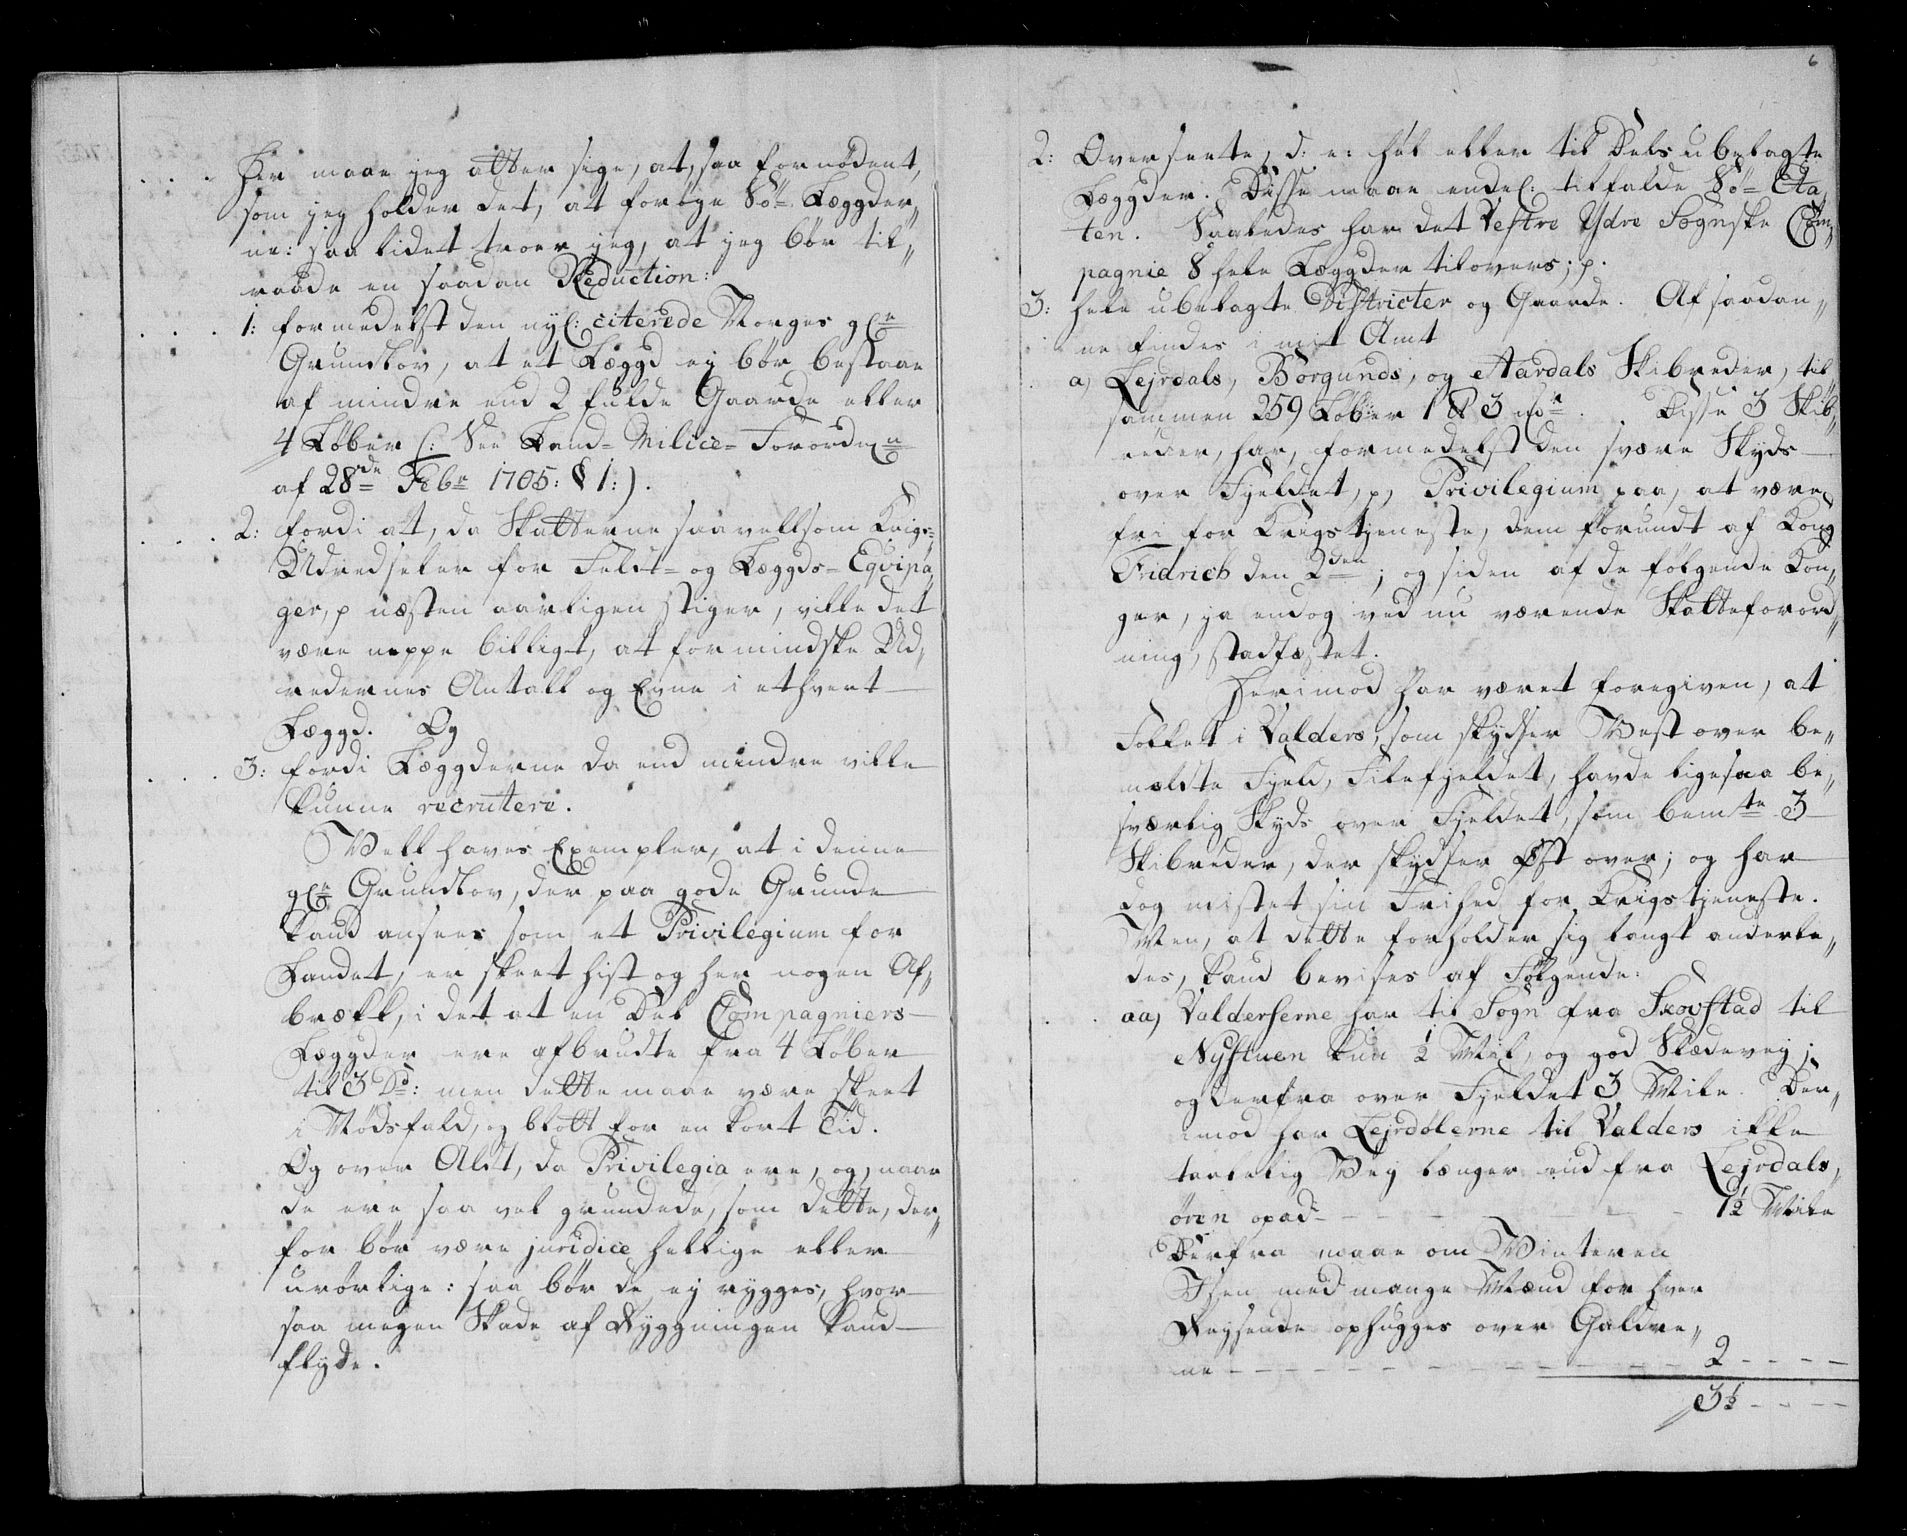 Her maae jeg atter sige, at, saa fornødent,
som jeg holder det, at forøge Sö-Læggder,,
ne: saa lidet troer jeg, at jeg bör til,,
raade en saadan Reduction:
1: formedelst den nyl: citerede Norges gl:e
Grundlov, at et Læggd ej bör bestaae
af mindre end 2 fulde Gaarde eller
4 Løber (: See Land-Milice-Forordn:n
af 28de Febr 1705: § 1:).
2: fordi at, da Skatterne saavelsom Krigs-
Udredseler for Felt- og Læggds-Eqvipa,,
ger, p næsten aarligen stiger, ville det
være neppe billigt, at formindske Ud,,
redernes Antall og Evne i ethvert
Læggd. Og
3: fordi Læggderne da end mindre ville
kunne recrutere.
Vell haves Exempler, at i denne
gl:e Grundlov, der paa gode Grunde
kand ansees som et Privilegium for
Landet, er skeet hist og her nogen Af,,
brækk, i det at en Del Compagniers
Læggder ere afbrudte fra 4 Løber
til 3 Do: men dette maae være skeet
i Nødsfald, og blott for en kort Tid.
Og over Aldt, da Privilegia ere, og, naar
de ere saa vel grundede, som dette, der,,
for bör være juridice hellige eller
urørlige: saa bör de ej rygges, hvor
saa megen Skade af Rygningen kand
flyde.
6
2: Overseete, d: e: hel eller til Dels ubelagte
Læggder. Disse maae endel: tilfalde Sö-Eta,,
ten. Saaledes har det Vestre Ydre Sognske Com,,
pagnie 8 hele Læggder tilovers; p.
3: hele ubelagte Districter og Gaarde. Af saadan,,
ne findes i mit Amt
a) Lejrdals, Borgunds, og Aardals Skibreder, til
sammen 259 Løber 1 § 3 Disse 3 Skib,,
reder, har, formedelst den svære Skyds
over Fjeldet, p, Privilegium paa, at være
fri for Krigstjeneste, dem forundt af Kong
Fridrich den 2den; og siden af de følgende Kon,,
ger, ja endog ved nu værende Skatteforord,,
ning, stadfæstet.
Herimod har været foregiven, at
Folket i Valders, som skydser Vest over be,,
meldte Fjeld, Filefjeldet, havde ligesaa be,,
sværlig Skyds over Fjeldet, som bemte 3
Skibreder, der skydser Øst over; og har
dog mistet sin Frihed for Krigstjeneste.
Men, at dette forholder sig langt anderle,,
des, kand bevises af Følgende:
aa) Valderserne har til Sogn fra Skovstad til
Nystuen kun ½ Miil, og god Slædevej;
og derfra over Fjeldet 3 Mile. Der,,
imod har Lejrdølerne til Valders ikke
taalelig Vej længer end fra Lejrdals,,
øren opad - - - 1½ Mile
Derfra maae om Vinteren
Isen med mange Mænd for hver
Rejsende ophugges over Galdre,,
ne - - - 2 - - -
3½ - - -